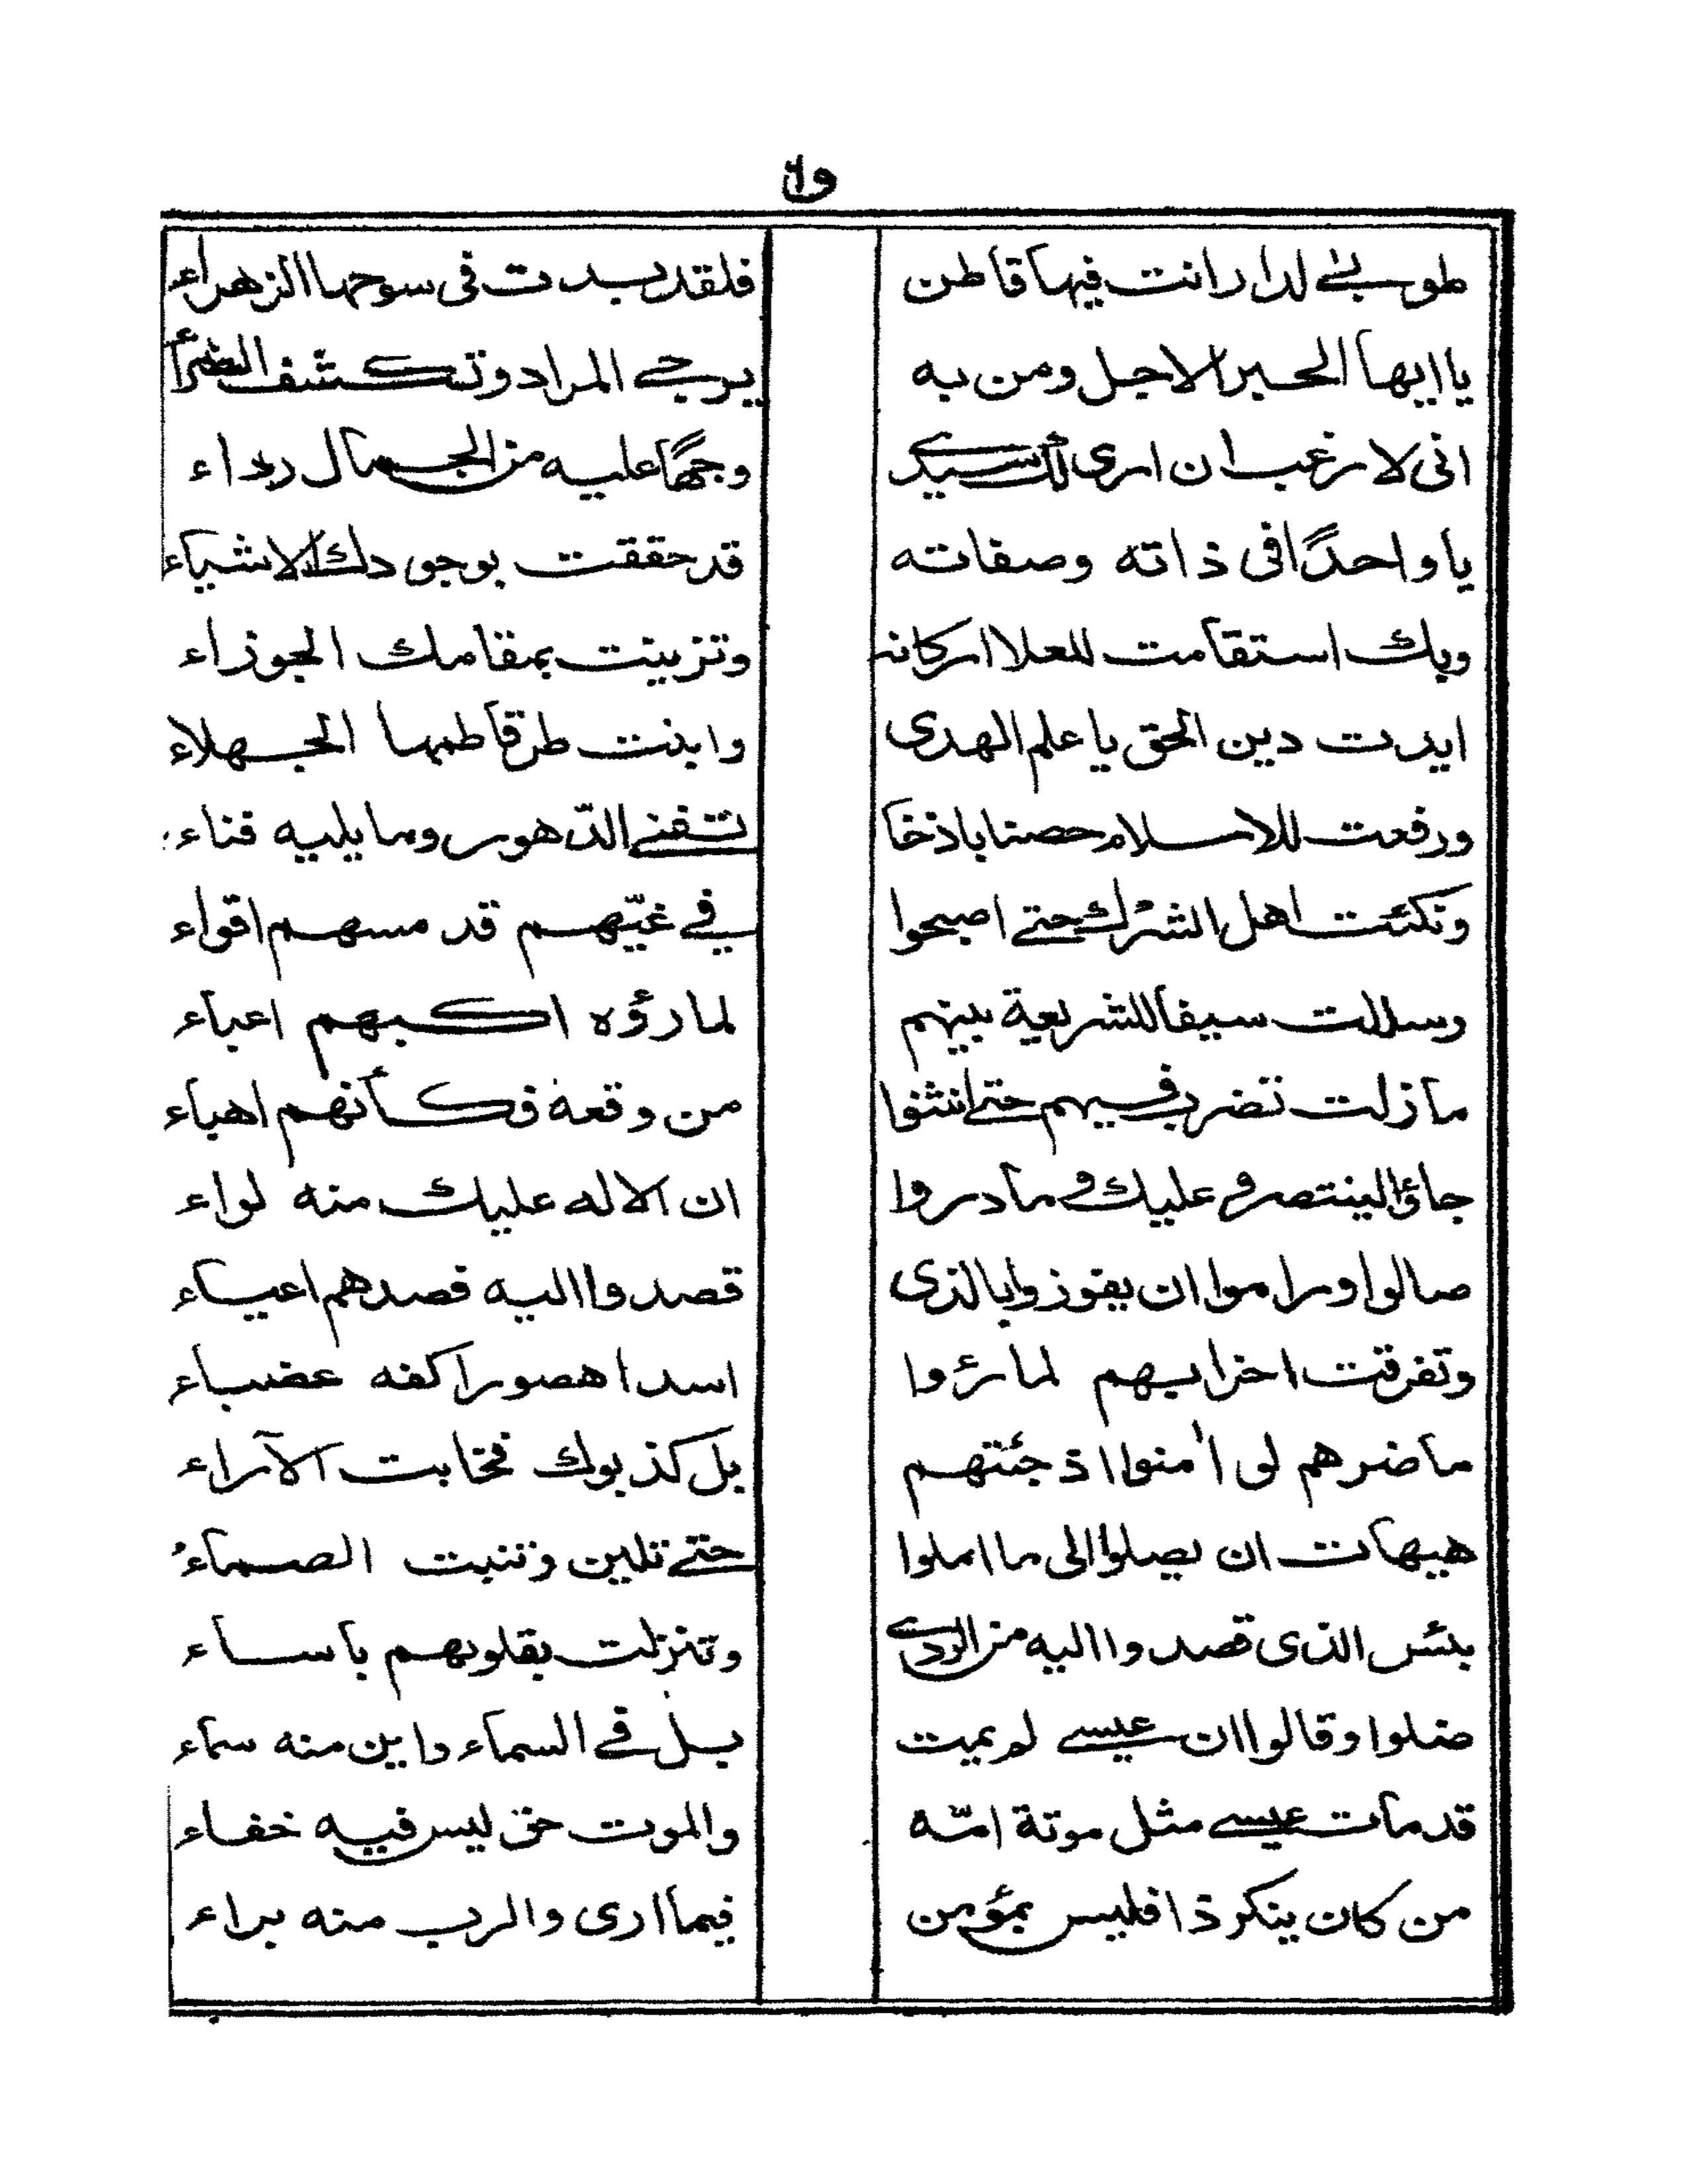 طوبىٰ لدار انت فيها قاطن فلقد بدت فى سوحها الزهراء
يا ايها الحبر الاجل ومن به يرجى المراد وتكشف الضراء
انى لارغب ان ارى لك سيدى وجهًا عليه من الجمال رداء
يا واحدًا فى ذاته وصفاته قد حققت بوجودك الاشياء
وبك استقامت للعلا اركانه وتزينت بمقامك الجوزاء
ايدت دين الحق يا علم الهدى وابنت طرقا طمها الجهلاء
ورفعت للاسلام حصنا باذخا تفنى الدّهور وما يليه فناء
ونكئت اهل الشرك حتى اصبحوا فى غيّهم قد مسهم اقواء
وسللت سيفا للشريعة بينهم لما رؤه اكبهم اعياء
ما زلت تضرب فيهم حتى انثنوا من وقعه فكأنهم اهباء
جاؤا لينتصروا عليك وما دروا ان الاله عليك منه لواء
صالوا وراموا ان يفوزوا بالذى قصدوا اليه فصدهم اعياء
وتفرقت احزابهم لما رءوا اسدا هصورا كفه عضباء
ما ضرهم لو اٰمنوا اذ جئتهم بل كذبوك فخابت الآراء
هيهات ان يصلوا الى ما املوا حتى تلين وتنبت الصماء
بئس الذى قصدوا اليه من الردى وتنزلت بقلوبهم باساء
ضلوا وقالوا ان عيسى لم يمت بل فى السماء واين منه سماء
قد مات عيسى مثل موتة امّه والموت حق ليس فيه خفاء
من كان ينكر ذا فليس بمؤمن فيما ارى والرب منه براء